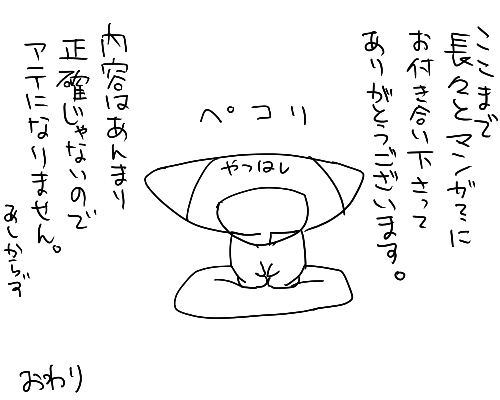 ここまで
長々とマンガ？に
お付き合い下さって
ありがとうございます。
ペコリ
やつはし
内容はあんまり
正確じゃないので
アテになりません。
あしからず
おわり